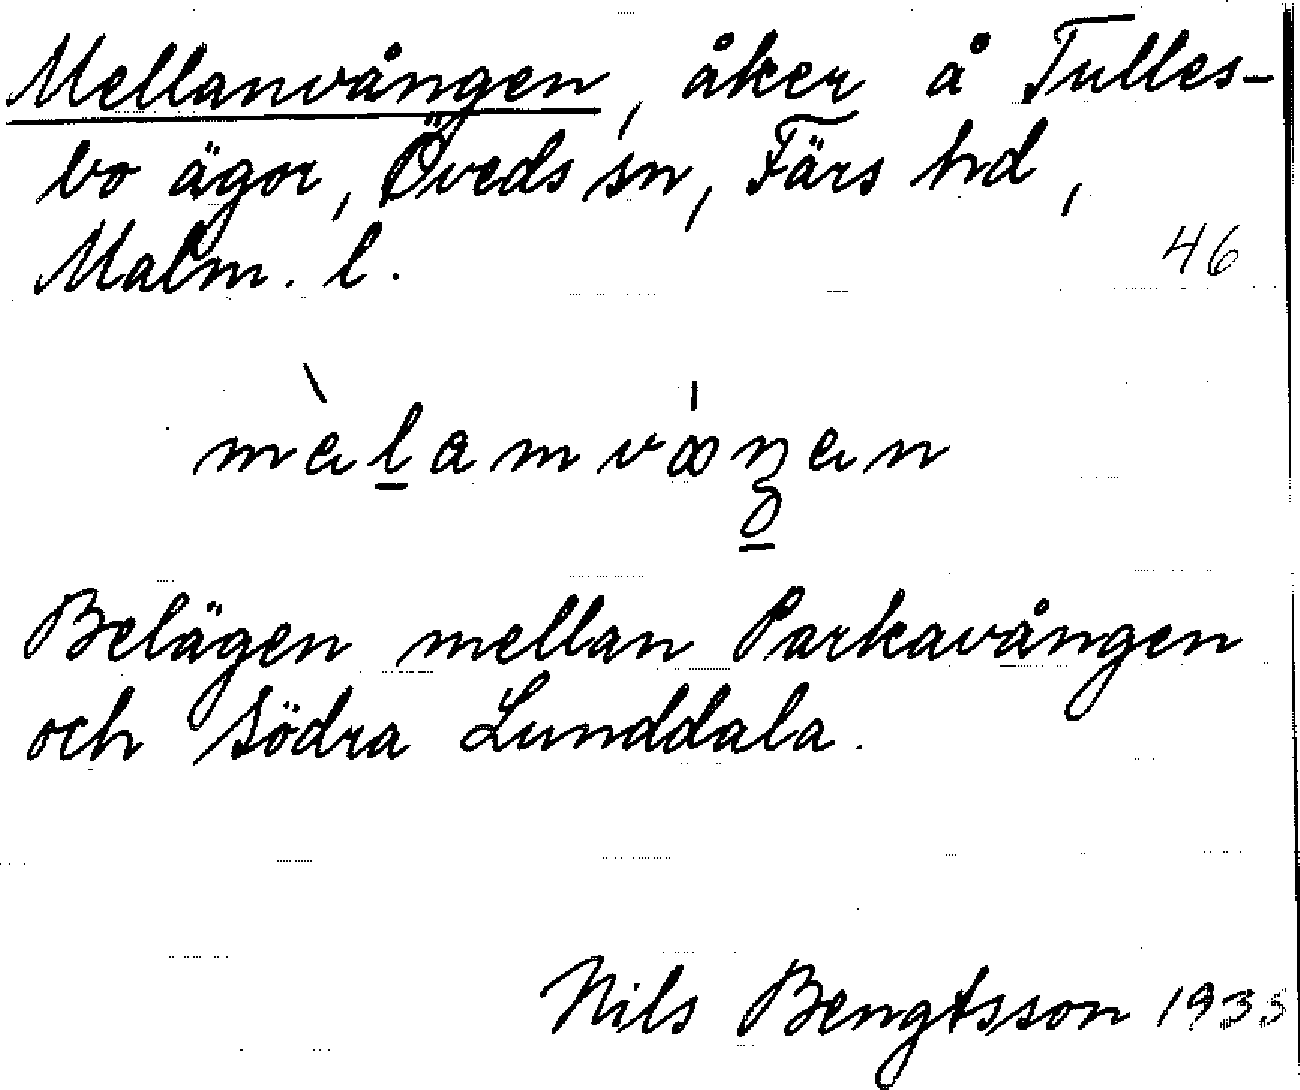 Mellanvången, åker å Tulles-
bo ägor, Öveds sn, Färs hd,
Malm. l.
46
Belägen mellan Parkavången
och Södra Lunddala.
Nils Bengtsson 1935